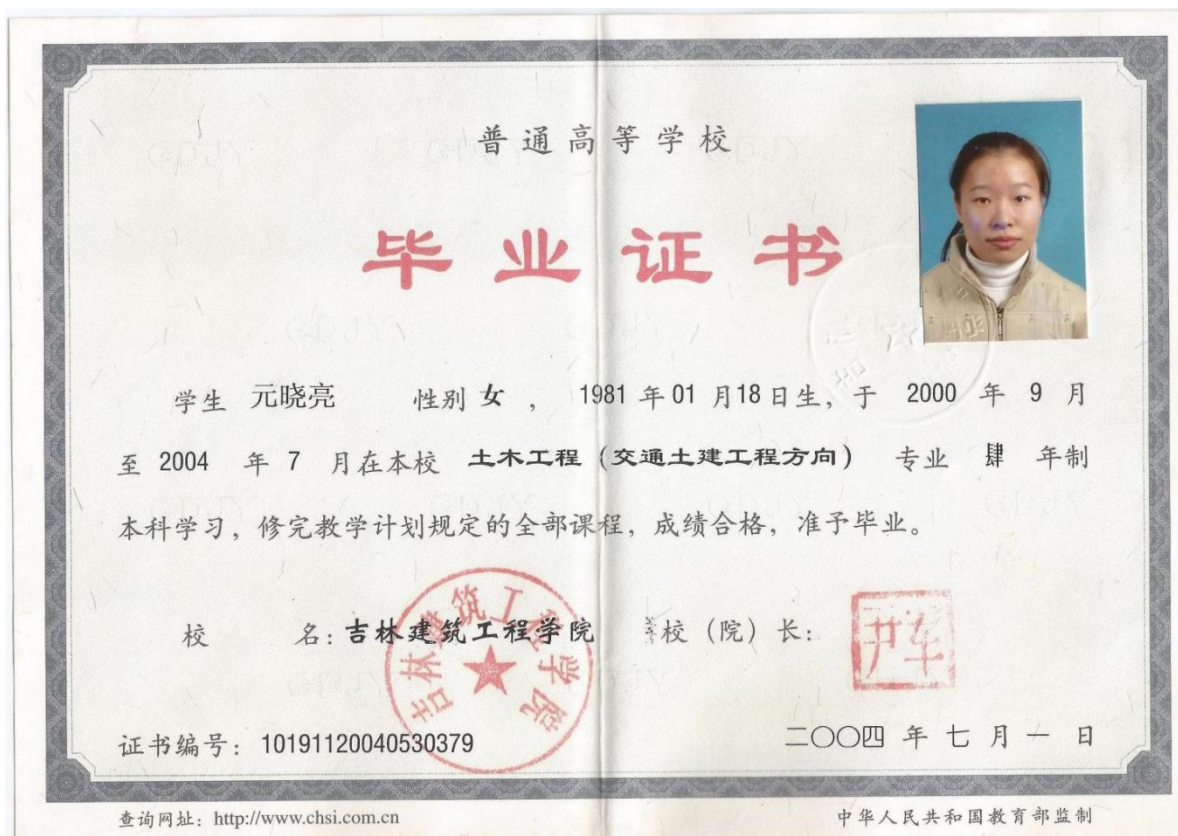 普通高等学校
毕业证书
学生 元晓亮 性别 女 , 1981 年 01 月 18 日生, 于 2000 年 9 月
至 2004 年 7 月在本校 土木工程（交通土建工程方向） 专业 肆 年制
本科学习, 修完教学计划规定的全部课程, 成绩合格, 准予毕业。
校 名: 吉林建筑工程学院 校（院）长:
吉林建筑工程学院
证书编号: 10191120040530379
二〇〇四 年 七 月 一 日
查询网址: http://www.chsi.com.cn
中华人民共和国教育部监制